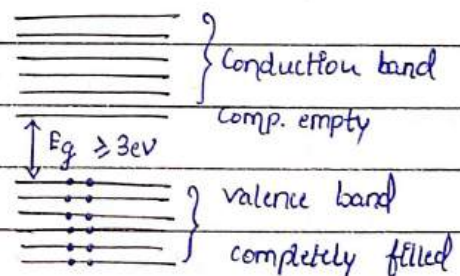 Conduction band
Comp. empty
Eg ≥ 3eV
valence band
completely filled